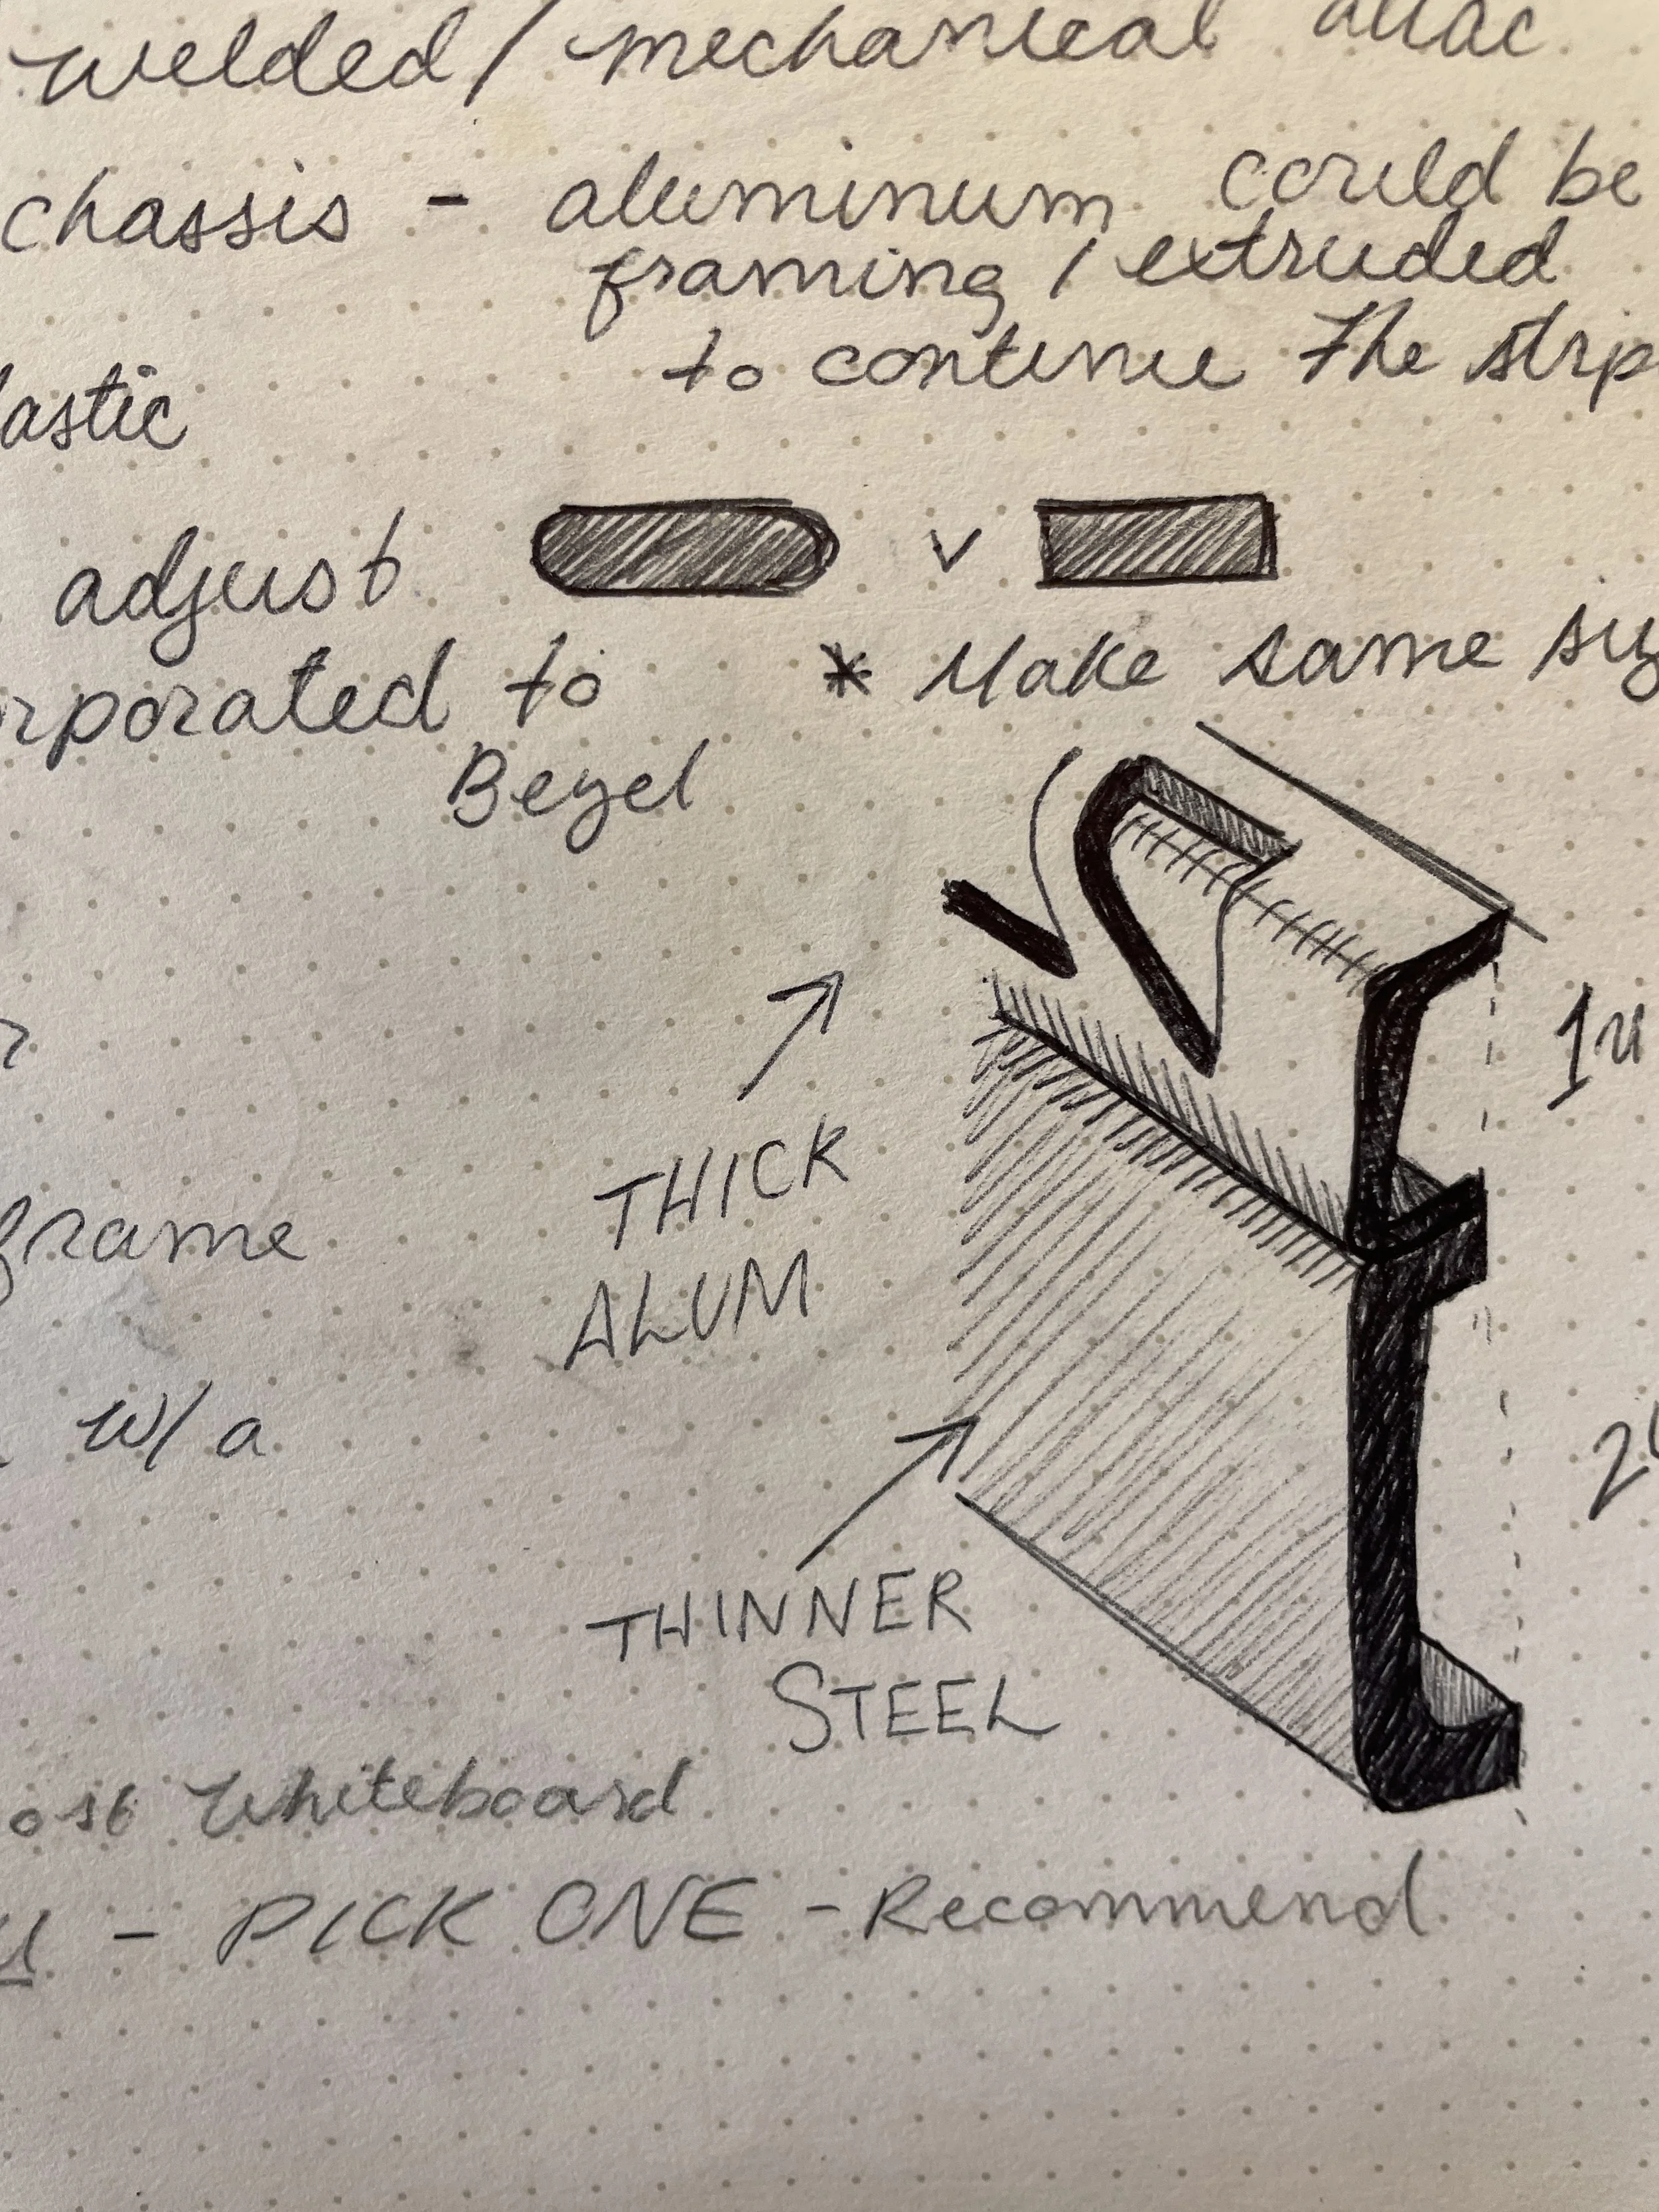 welded/mechanical attac
chassis - aluminum could be
framing / extruded
to continue the strip
lastic
adjust v
rporated to * Make same siz
Bezel
1u
THICK
ALUM
frame
w/ a
THINNER
STEEL
ost whiteboard
- PICK ONE - Recommend